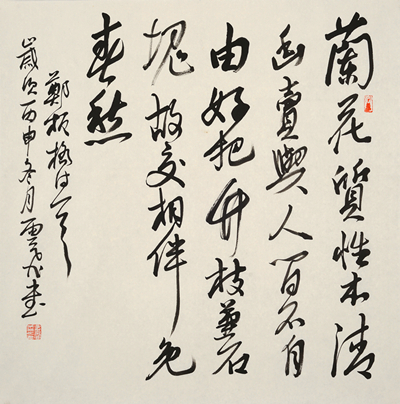 蘭花質性本清
幽賣與人間不自
由好把竹枝兼石
塊故交相伴免
春愁
鄭板橋詩一首
歲次丙申冬月書